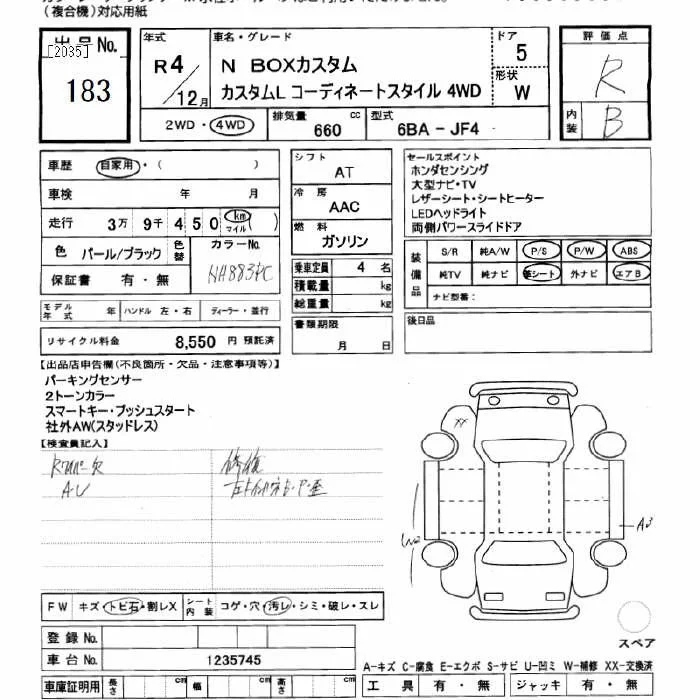 (複合機)対応用紙
出品No. [2035] 183
年式 R4/12月
車名・グレード
N BOXカスタム
カスタムL コーディネートスタイル 4WD
ドア 5
形状 W
評価点 R
内装 B
2WD・4WD 排気量 660 cc 型式 6BA - JF4
車歴 自家用・( )
車検 年 月
走行 3万 9千 4 5 0 km マイル ( )
色 パール/ブラック 色替 カラーNo. NH883PC
保証書 有・無
モデル年式 年 ハンドル 左・右 ディーラー・並行
リサイクル料金 8,550 円 預託済
シフト AT
冷房 AAC
燃料 ガソリン
乗車定員 4 名
積載量 kg
総重量 kg
書類期限 月 日
セールスポイント
ホンダセンシング
大型ナビ・TV
レザーシート・シートヒーター
LEDヘッドライト
両側パワースライドドア
装備品 S/R 純A/W P/S P/W ABS
純TV 純ナビ 革シート 外ナビ エアB
ナビ型番:
後日品
【出品店申告欄(不良箇所・欠品・注意事項等)】
パーキングセンサー
2トーンカラー
スマートキー・プッシュスタート
社外AW(スタッドレス)
【検査員記入】
修復
AU
XX
W2
A3
FW キズ・トビ石・割レX シート内装 コゲ・穴・汚レ・シミ・破レ・スレ
登録No.
車台No. 1235745
スペア
A-キズ C-腐食 E-エクボ S-サビ U-凹ミ W-補修 XX-交換済
車庫証明用 長さ cm 幅 cm 高さ cm 工具 有・無 ジャッキ 有・無